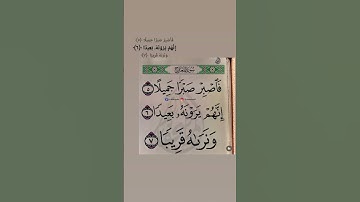 فَاصْبِرْ صَبْرًا جَمِيلًا ﴿٥﴾
إِنَّهُمْ يَرَوْنَهُ بَعِيدًا ﴿٦﴾
وَنَرَاهُ قَرِيبًا ﴿٧﴾
فَٱصْبِرْ صَبْرًا جَمِيلًا ٥
إِنَّهُمْ يَرَوْنَهُۥ بَعِيدًا ٦
وَنَرَىٰهُ قَرِيبًا ٧